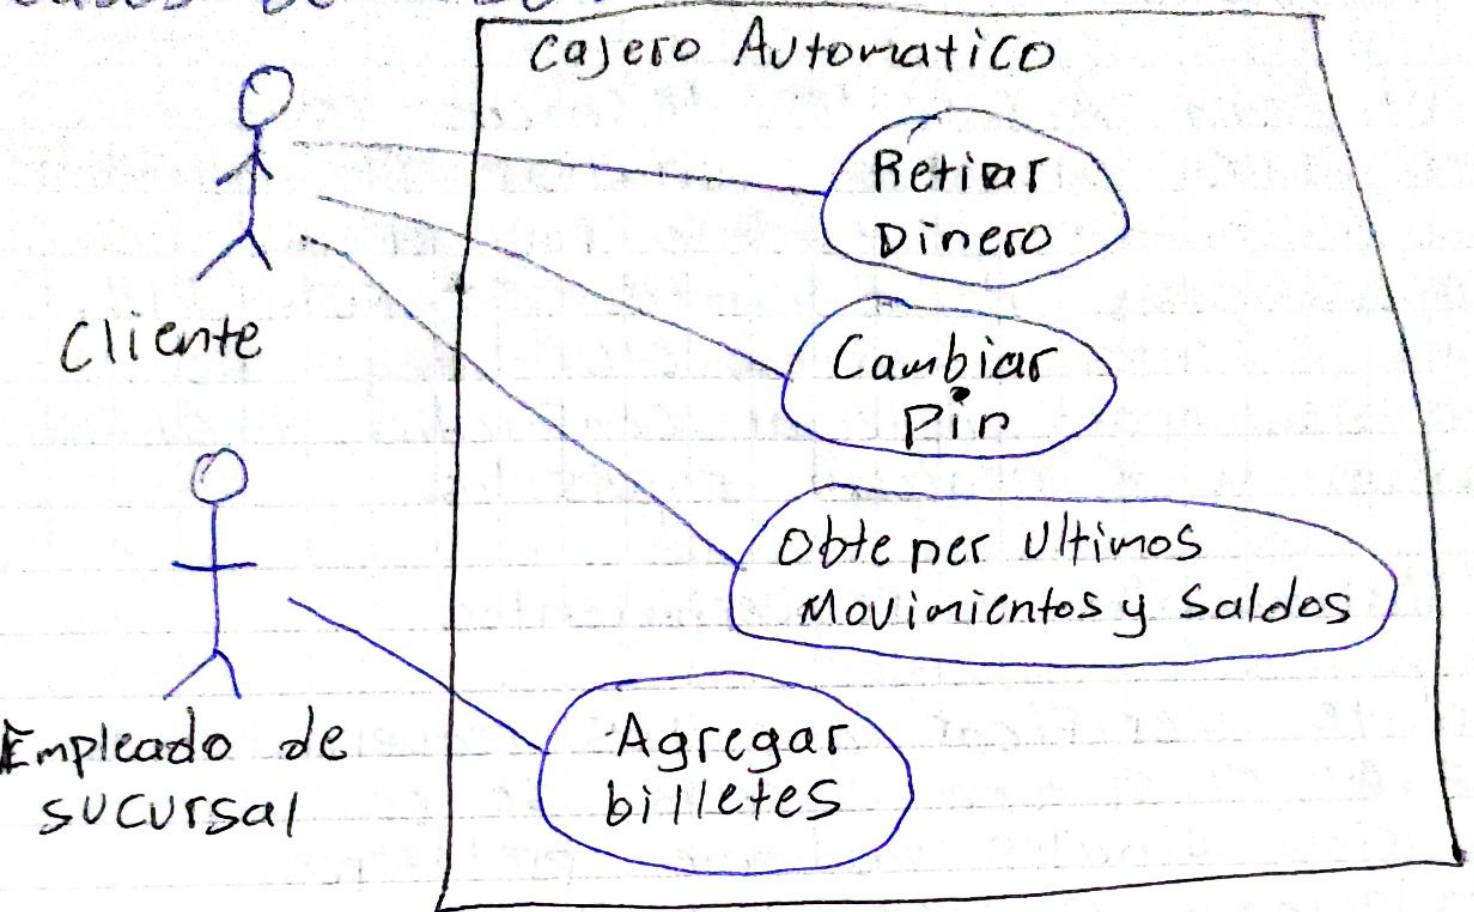 Cajero Automatico
Retirar
Dinero
Cliente
Cambiar
Pin
Obtener Ultimos
Movimientos y Saldos
Empleado de
sucursal
Agregar
billetes